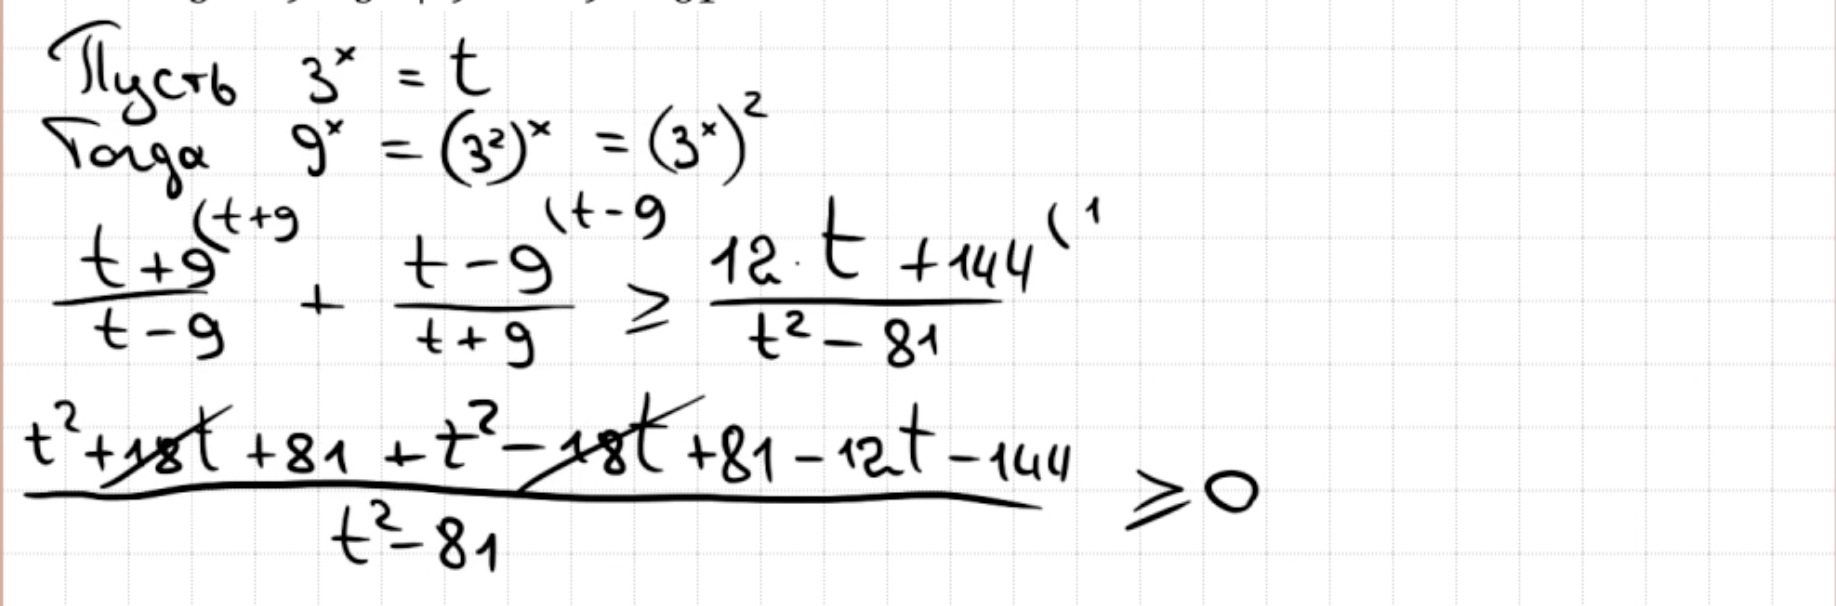 Пусть 3^x = t
Тогда 9^x = (3²)^x = (3^x)²
(t+9 (t-9 (1
(t+9)/(t-9) + (t-9)/(t+9) ≥ (12·t+144)/(t²-81)
(t²+18t+81+t²-18t+81-12t-144)/(t²-81) ≥ 0